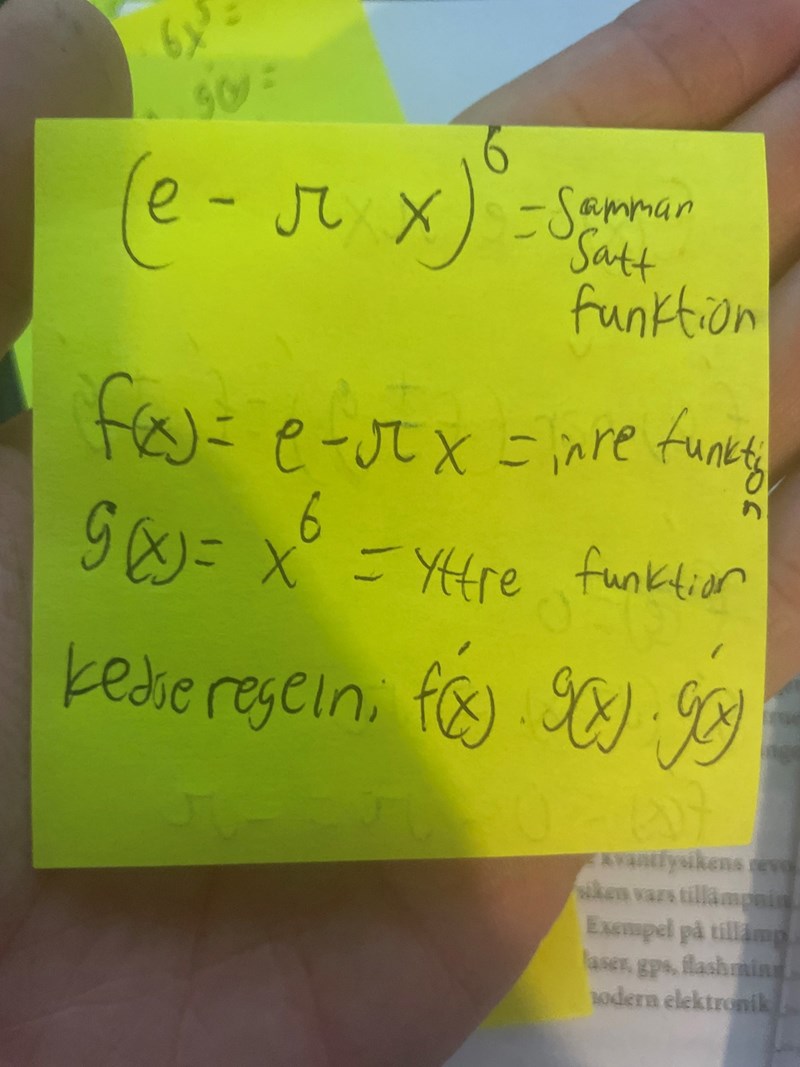 6x⁵ =
g(x) =
(e - π x)⁶ = Samman
satt
funktion
f(x) = e - π x = inre funktion
g(x) = x⁶ = yttre funktion
kedjeregeln; f'(x) · g(x) · g'(x)
kvantfysikens revo
siken vars tillämpnin
Exempel på tillämp
laser, gps, flashminn
modern elektronik